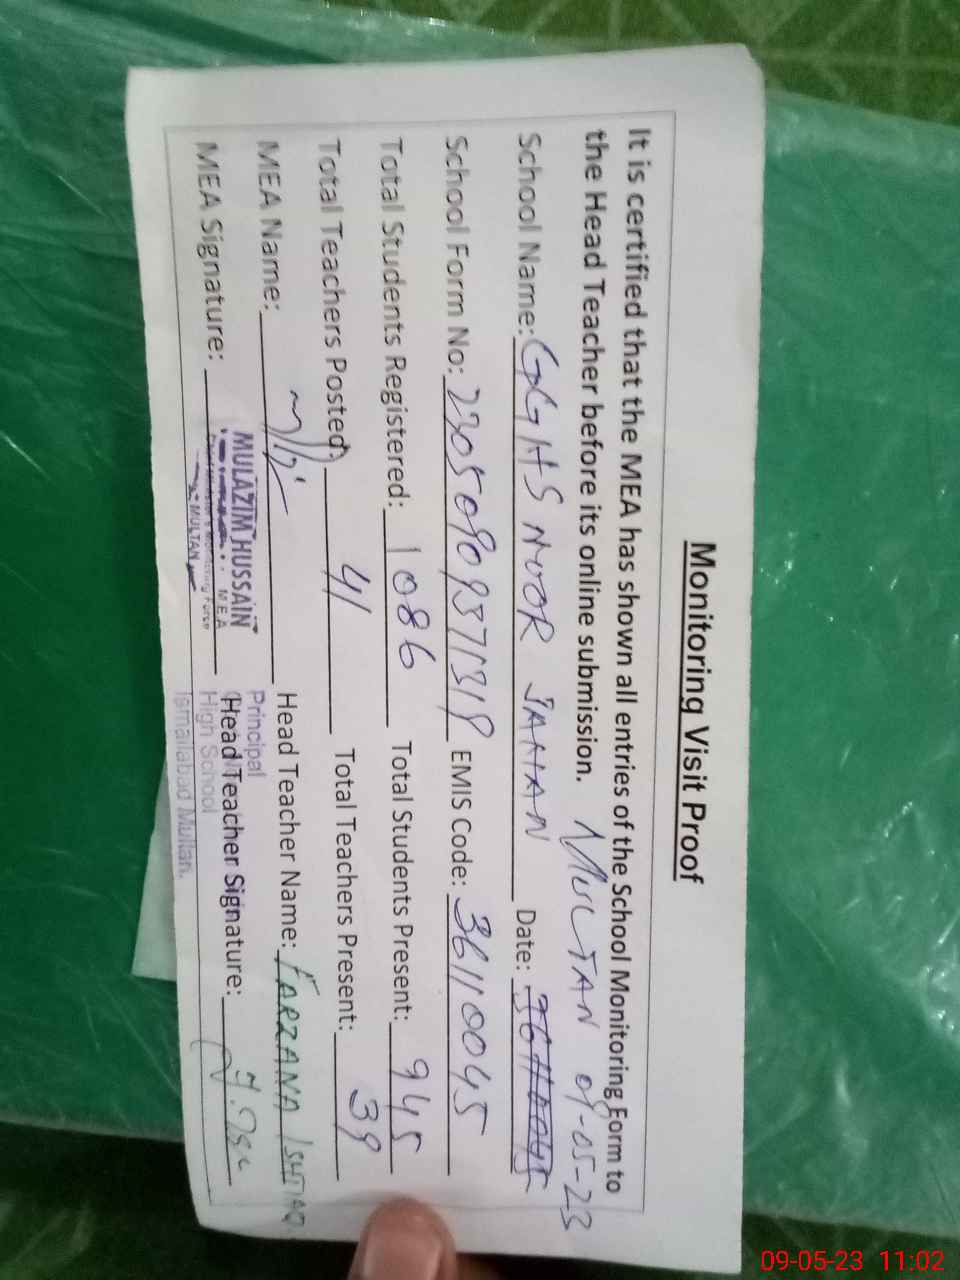 Monitoring Visit Proof
It is certified that the MEA has shown all entries of the School Monitoring Form to
the Head Teacher before its online submission.
MULTAN 09-05-23
School Name: GGHS NOOR JAHAN Date: 36110045
School Form No: EMIS Code: 36110045
Total Students Registered: 1086 Total Students Present: 945
Total Teachers Posted: 41 Total Teachers Present: 39
MEA Name: Head Teacher Name: FARZANA ISHTIAQ
MULAZIM HUSSAIN
M E A
Monitoring Force
MULTAN
MEA Signature: Head Teacher Signature:
Principal
High School
Ismailabad Multan.
09-05-23 11:02